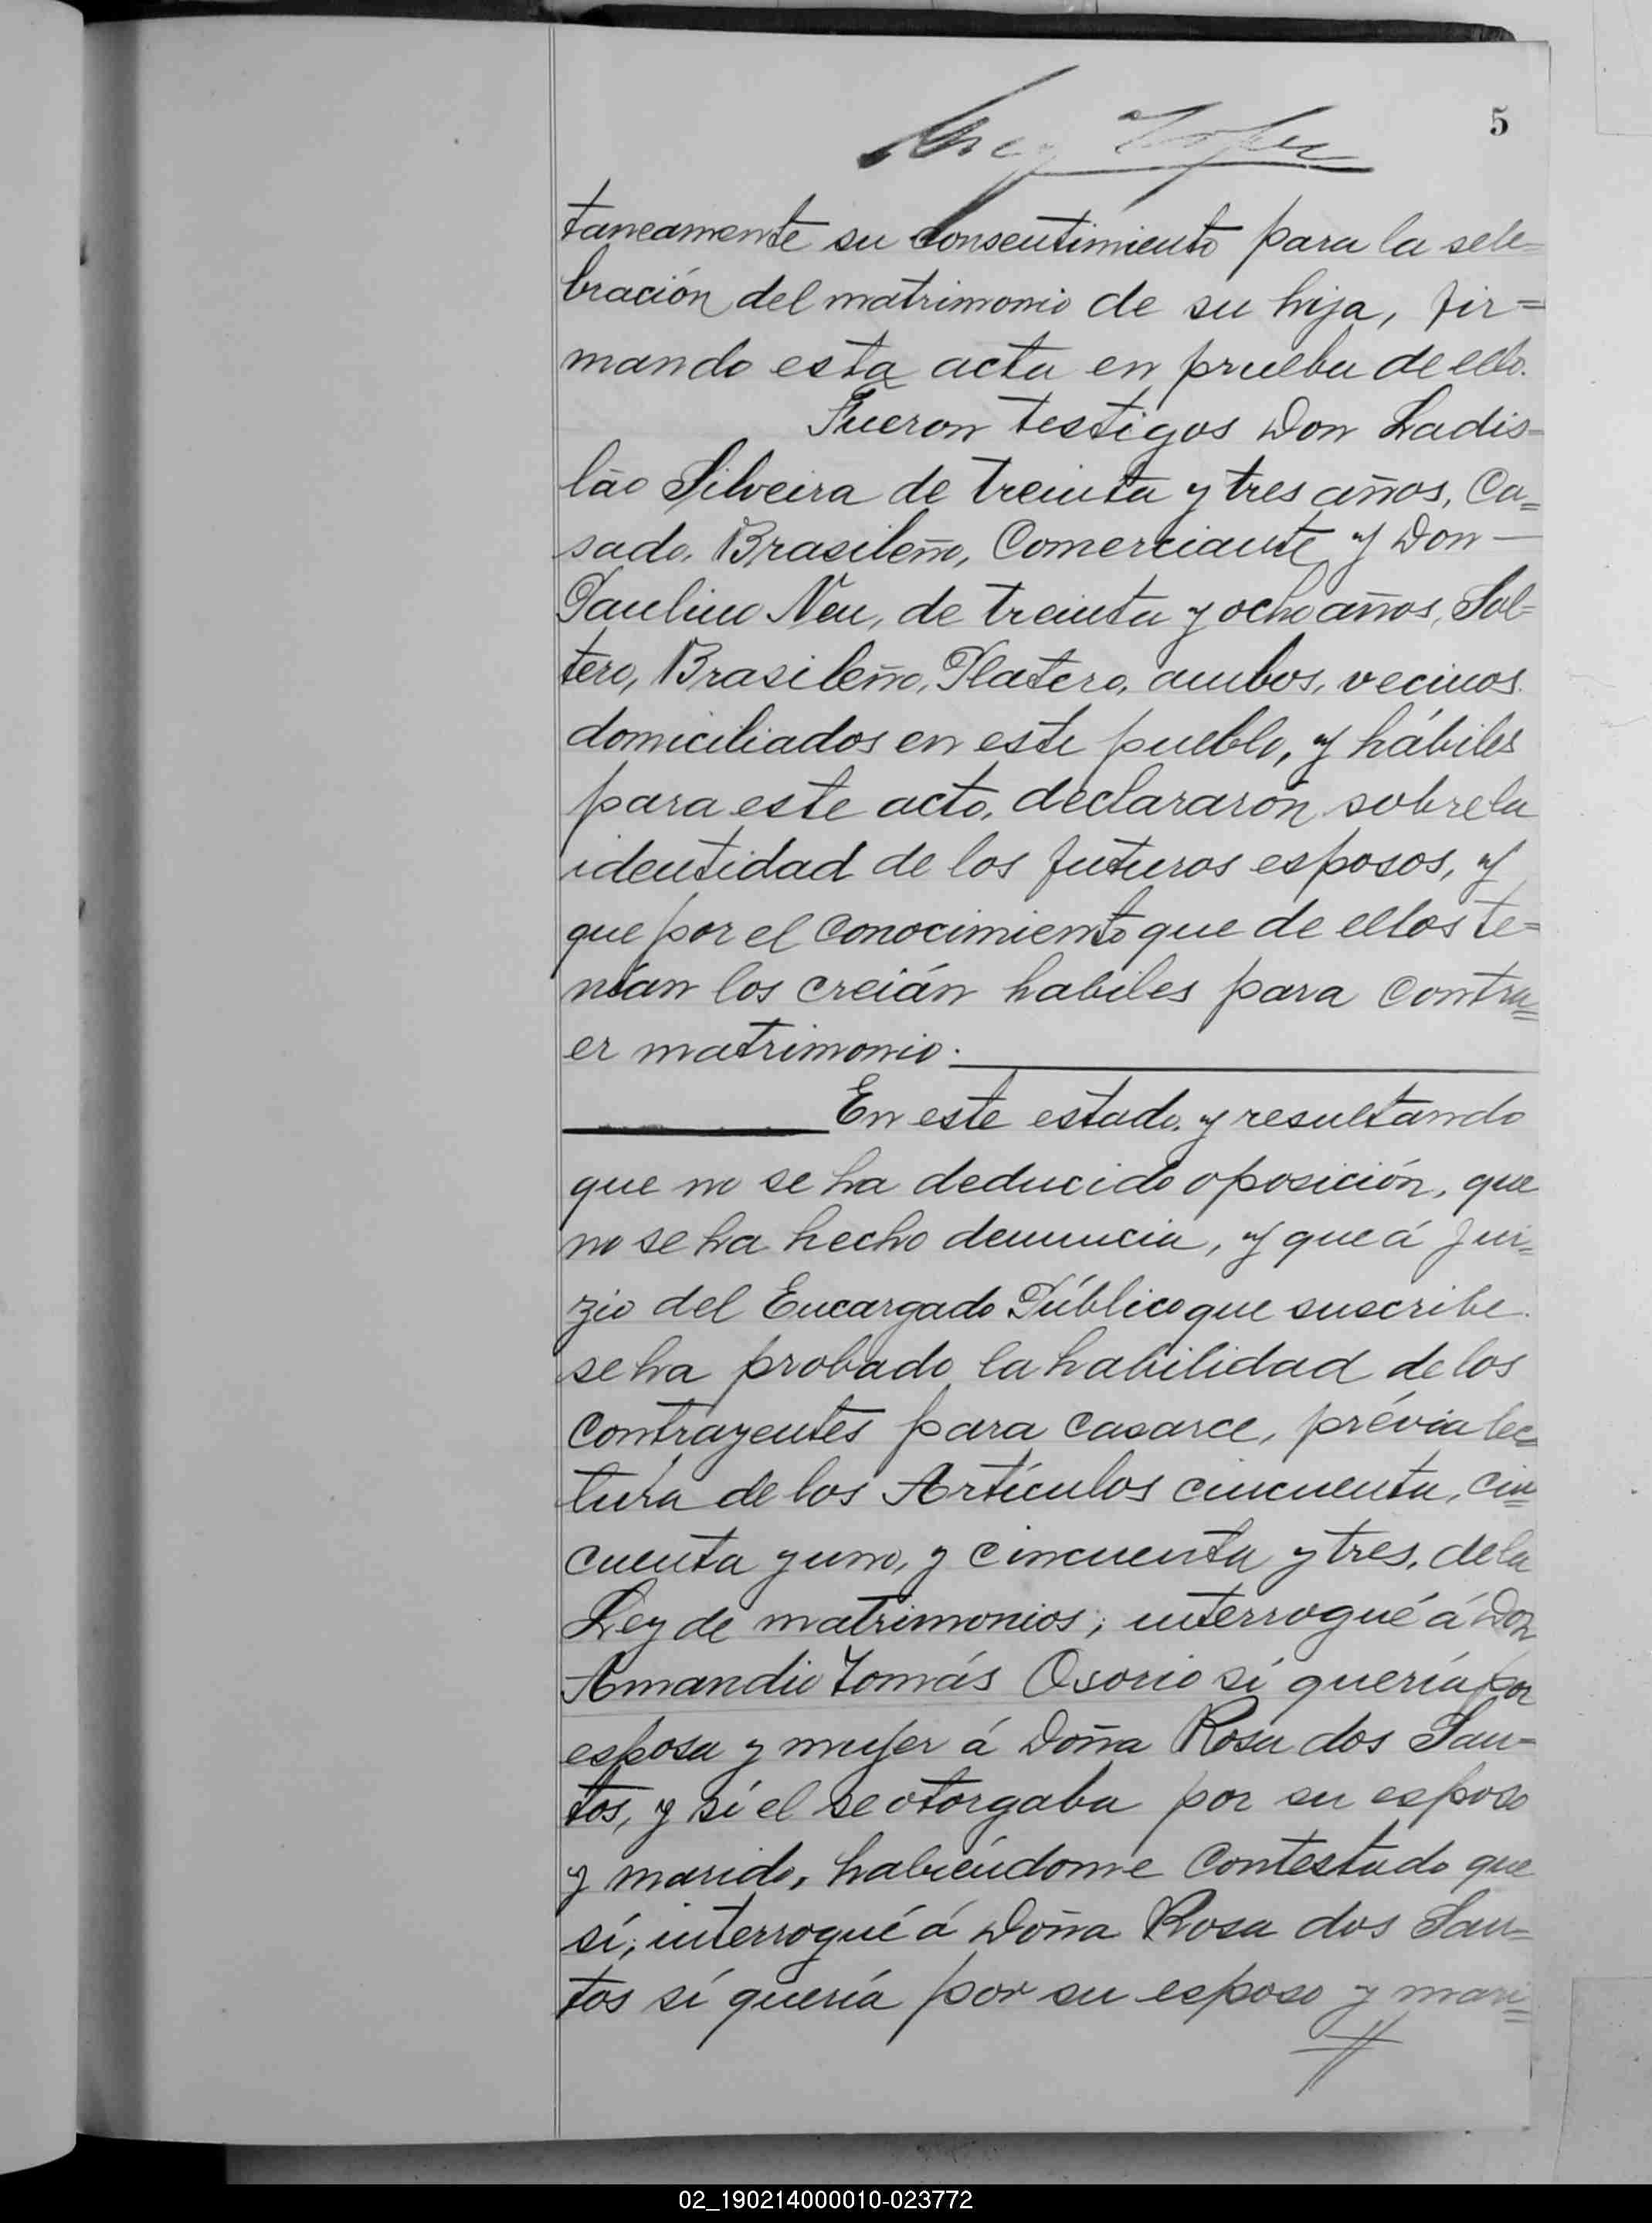 5
taneamente su consentimiento para la sele=
bración del matrimonio de su hija, fir=
mando esta acta en prueba de ello.
Fueron testigos Don Ladis=
lão Silveira de treinta y tres años, Ca=
sado, Brasileño, Comerciante, y Don —
Paulino Neu, de treinta y ocho años, Sol=
tero, Brasileño, Platero, ambos, vecinos
domiciliados en este pueblo, y hábiles
para este acto, declararón sobre la
identidad de los futuros esposos, y
que por el conocimiento que de ellos te=
nían los creián habiles para contra=
er matrimonio.
En este estado, y resultando
que no se ha deducido oposición, que
no se ha hecho denuncia, y que á jui=
zio del Encargado Público que suscribe
se ha probado la habilidad de los
contrayentes para casarce, prévia lec=
tura de los Artículos cincuenta, cin=
cuenta y uno, y cincuenta y tres, de la
Ley de matrimonios; interrogué á Don
Amandio Tomás Osorio sí quería por
esposa y mujer á Doña Rosa dos San=
tos, y sí el se otorgaba por su esposo
y marido, habiéndome contestado que
sí; interrogué á Doña Rosa dos San=
tos sí quería por su esposo y mari=
02_190214000010-023772